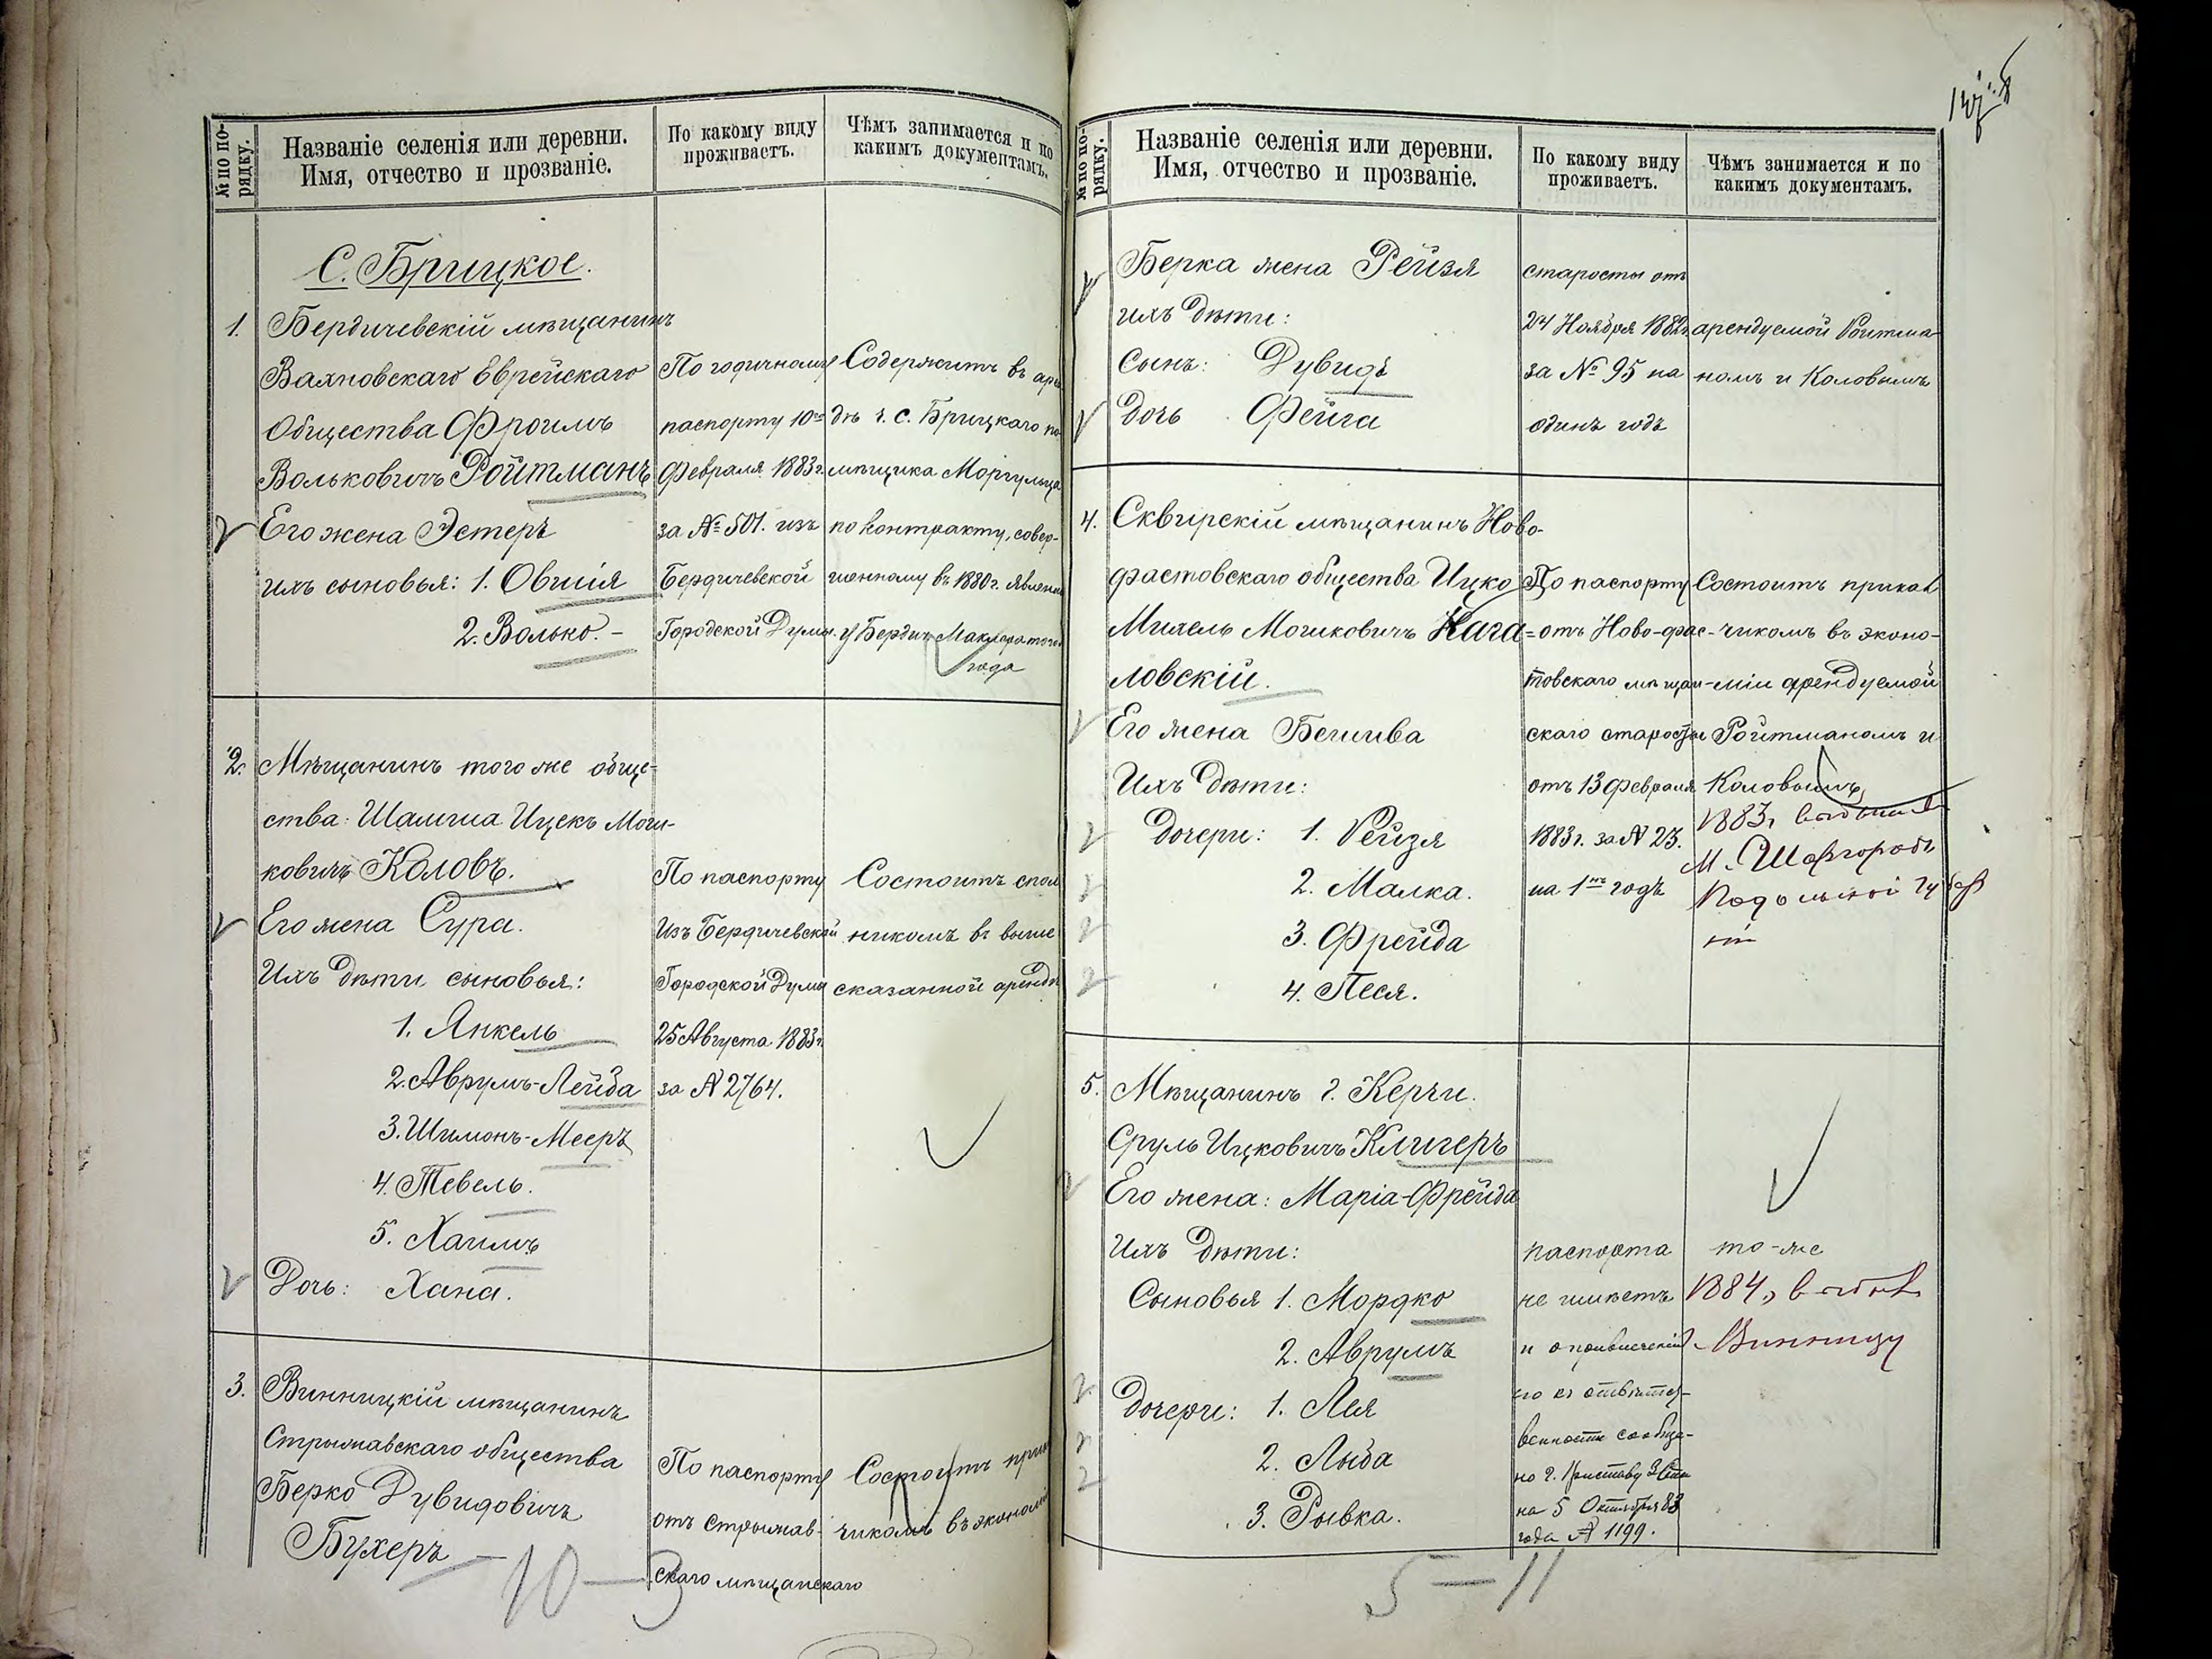 № по по-
рядку.
Названіе селенія или деревни.
Имя, отчество и прозваніе.
По какому виду
проживаетъ.
Чѣмъ занимается и по
какимъ документамъ.
С. Брицкое.
1. Бердичевскій мѣщанинъ
Вахновскаго Еврейскаго
Общества Фроимъ
Вольковичъ Ройтманъ
Его жена Эстеръ
ихъ сыновья: 1. Овшія
2. Волько. –
По годичному
паспорту 10го
февраля 1883 г.
за № 501. изъ
Бердичевской
Городской Думы.
Содержитъ въ арен
дѣ ч. с. Брицкаго по
мѣщика Моргульца
по контракту, совер-
шенному въ 1880 г. явлен
у Бердич. Маклера того
года
2. Мѣщанинъ того же обще-
ства: Шамша Ицекъ Мош-
ковичъ Коловъ.
Его жена Сура.
Ихъ дѣти сыновья:
1. Янкель
2. Аврумъ-Лейба
3. Шимонъ-Мееръ
4. Тевель.
5. Хаимъ
Дочь: Хана.
По паспорту
Изъ Бердичевской
Городской Думы
25 Августа 1883 г.
за № 2764.
Состоитъ спол
никомъ въ выше
сказанной аренд
3. Винницкій мѣщанинъ
Стрыжавскаго общества
Берко Дувидовичъ
Бухеръ –
По паспорту
отъ Стрыжав-
скаго мѣщанскаго
Состоитъ прик
чикомъ въ экономі
10 – 3
№ по по-
рядку.
Названіе селенія или деревни.
Имя, отчество и прозваніе.
По какому виду
проживаетъ.
Чѣмъ занимается и по
какимъ документамъ.
Берка жена Рейзя
ихъ дѣти:
Сынъ: Дувидъ
Дочь Фейга
старосты отъ
24 Ноября 1882 г.
за № 95 на
одинъ годъ
арендуемой Ройтма
номъ и Коловымъ
4. Сквирскій мѣщанинъ Ново-
фастовскаго общества Ицко
Михель Мошковичъ Кага=
ловскій.
Его жена Бешива
Ихъ дѣти:
Дочери: 1. Рейзя
2. Малка.
3. Фрейда
4. Песя.
По паспорту
отъ Ново-фас-
товскаго мѣщан-
скаго старосты
отъ 13 февраля
1883 г. за № 23.
на 1нъ годъ
Состоитъ прикащ
чикомъ въ эконо-
міи арендуемой
Ройтманомъ и
Коловымъ
1883,
м. Шаргородъ
Подольской Губер
ніи
5. Мѣщанинъ г. Керчи.
Сруль Ицковичъ Клигеръ
Его жена: Маріа-Фрейда
Ихъ дѣти:
Сыновья 1. Мордко
2. Аврумъ
Дочери: 1. Лея
2. Лыба
3. Рывка.
паспорта
не имѣетъ
и о привлеченіи
его къ отвѣтст-
венности сообще-
но г. Приставу 3 Ста
на 5 Октября 83
года № 1199.
то-же
1884,
Винницу
5 – 11